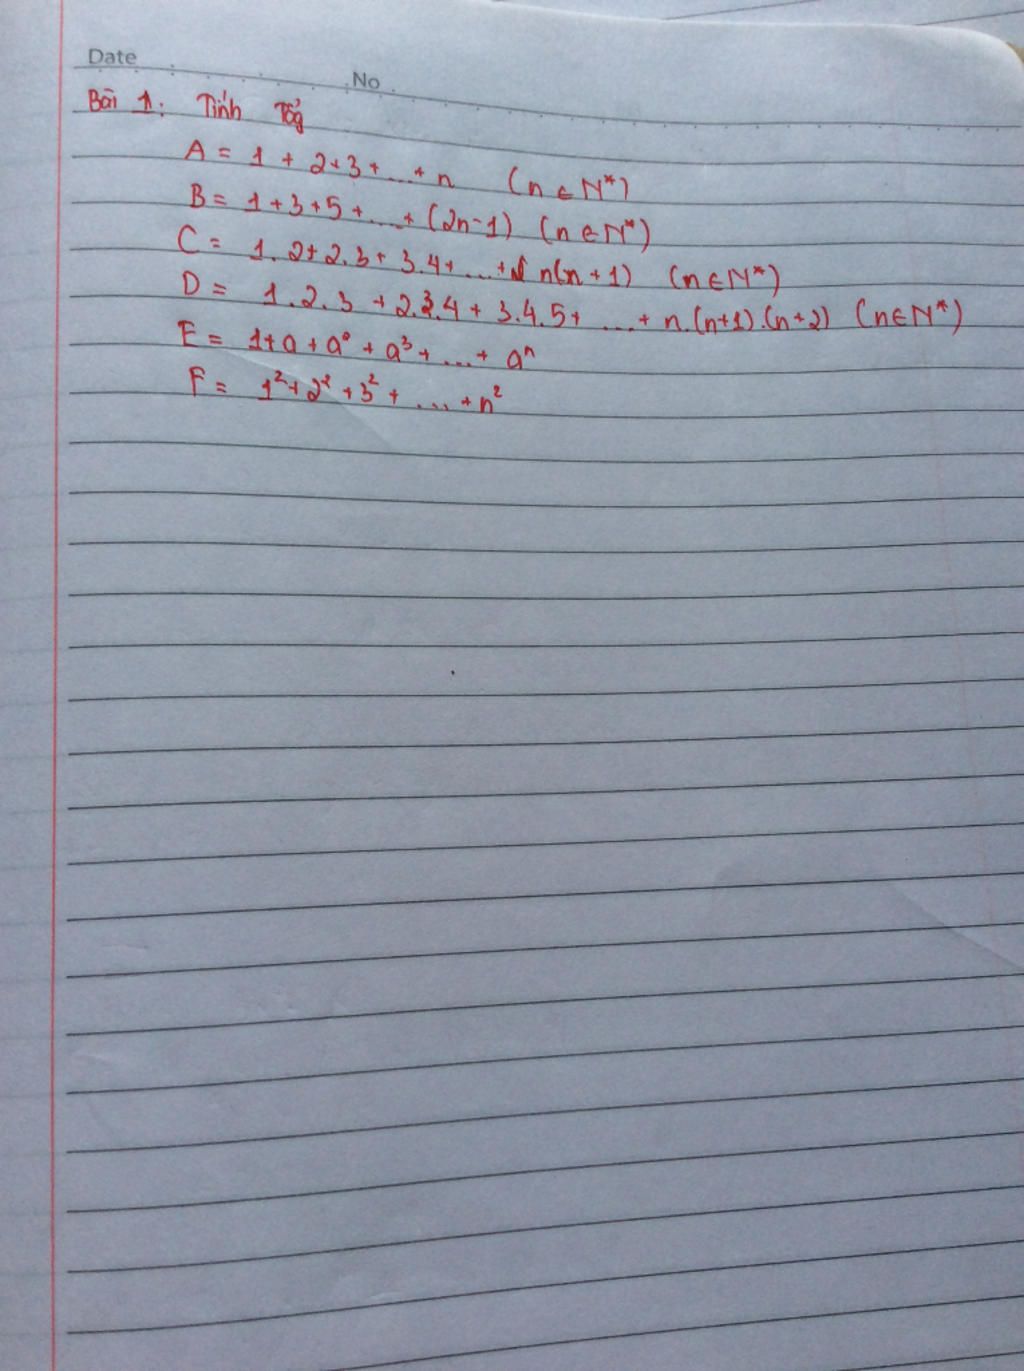 Date No
Bài 1: Tính Tổg
A = 1 + 2+3+...+n (n ∈ N*)
B= 1+3+5+...+(2n-1) (n∈N*)
C= 1.2+2.3+3.4+...+n(n+1) (n∈N*)
D= 1.2.3 +2.3.4+3.4.5+...+n.(n+1).(n+2) (n∈N*)
E= 1+a+a²+a³+...+aⁿ
F= 1²+2²+3²+...+n²